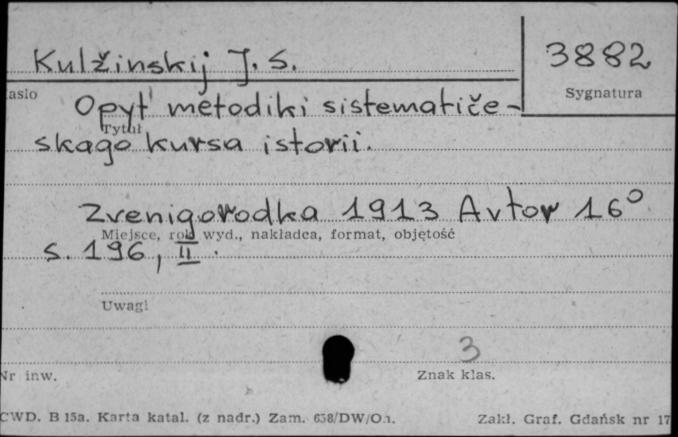 Kulžinskij J. S.
3882
asło
Sygnatura
Opyt' metodiki sistematiče-
Tytuł
skago kursa istorii.
Zvenigorodka 1913 Avtor 16°
Miejsce, rok wyd., nakładca, format, objętość
s. 196, II.
Uwagi
3
Nr inw.
Znak klas.
CWD. B 15a. Karta katal. (z nadr.) Zam. 658/DW/O.
Zakł. Graf. Gdańsk nr 17